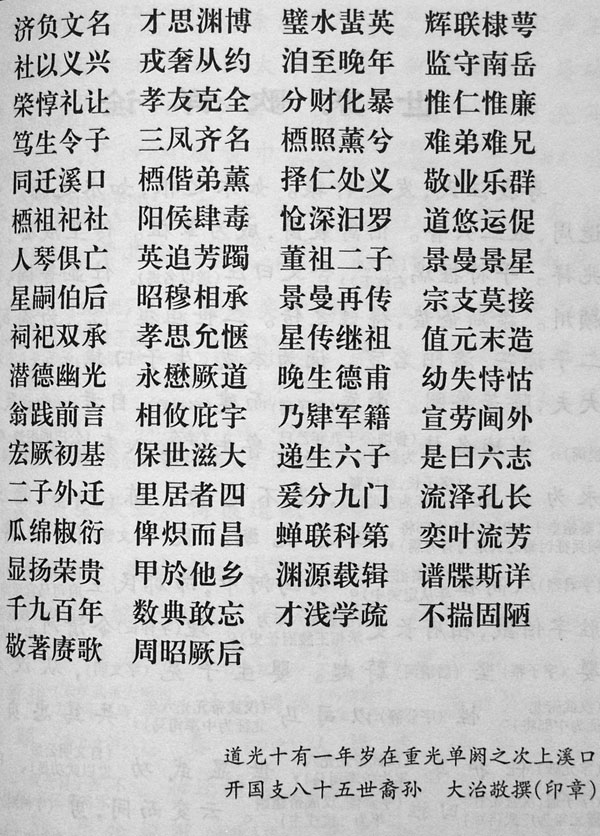 济负文名 才思渊博 璧水蜚英 辉联棣萼
社以义兴 戎奢从约 洎至晚年 监守南岳
榮惇礼让 孝友克全 分财化暴 惟仁惟廉
笃生令子 三凤齐名 槱照薰兮 难弟难兄
同迁溪口 槱偕弟薰 择仁处义 敬业乐群
槱祖祀社 阳侯肆毒 怆深汩罗 道悠运促
人琴俱亡 英追芳躅 董祖二子 景曼景星
星嗣伯后 昭穆相承 景曼再传 宗支莫接
祠祀双承 孝思允惬 星传继祖 值元末造
潜德幽光 永懋厥道 晚生德甫 幼失恃怙
翁践前言 相攸庇宇 乃肄军籍 宣劳阃外
宏厥初基 保世滋大 递生六子 是曰六志
二子外迁 里居者四 爰分九门 流泽孔长
瓜绵椒衍 俾炽而昌 蝉联科第 奕叶流芳
显扬荣贵 甲於他乡 渊源载辑 谱牒斯详
千九百年 数典敢忘 才浅学疏 不揣固陋
敬著赓歌 周昭厥后
道光十有一年岁在重光单阏之次上溪口
开国支八十五世裔孙 大治敬撰(印章)